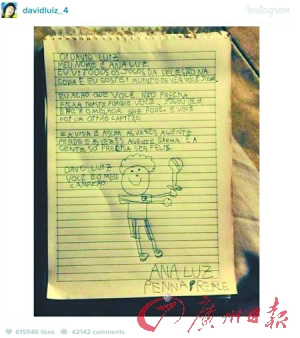 davidluiz_4
Instagram
OI DAVID LUIZ
MEU NOME É ANA LUZ
EU VI TODOS OS JOGOS DA SELEÇÃO NA
COPA E EU GOSTEI MUITO DE VER VOCÊ JOGAR
EU ACHO QUE VOCÊ NÃO PRECISA
FICAR TRISTE PORQUE VOCÊ JOGOU BEM
FEZ O MELHOR QUE PODE E VOCÊ
FOI UM OTIMO CAPITÃO
E A VIDA É ASSIM AS VEZES AGENTE
PERDE E AS VEZES AGENTE GANHA E A
GENTE SÓ PRECISA SER FELIZ
DAVID LUIZ
VOCÊ É O MEU
CAMPEÃO
ANA LUZ
PENNA
615546 likes
42142 comments
廣州日報